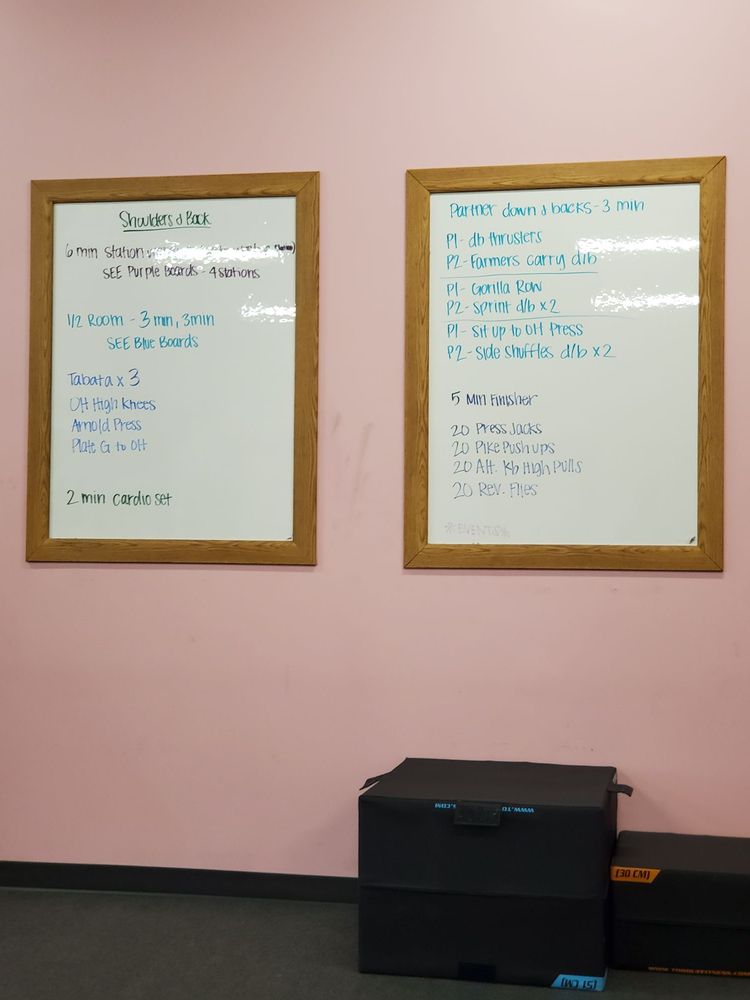 Shoulders & Back
6 min station
SEE Purple Boards - 4 stations
1/2 Room - 3 min, 3 min
SEE Blue Boards
Tabata x 3
OH High Knees
Arnold Press
Plate G to OH
2 min cardio set
Partner down & backs - 3 min
P1- db thrusters
P2- Farmers carry d/b
P1- Gorilla Row
P2- Sprint d/b x 2
P1- Sit up to OH Press
P2- Side Shuffles d/b x 2
5 Min Finisher
20 Press Jacks
20 Pike Push ups
20 Alt. Kb High Pulls
20 Rev. Flies
*EVENTS*
WWW.TO
S.COM
[30 CM]
[51 CM]